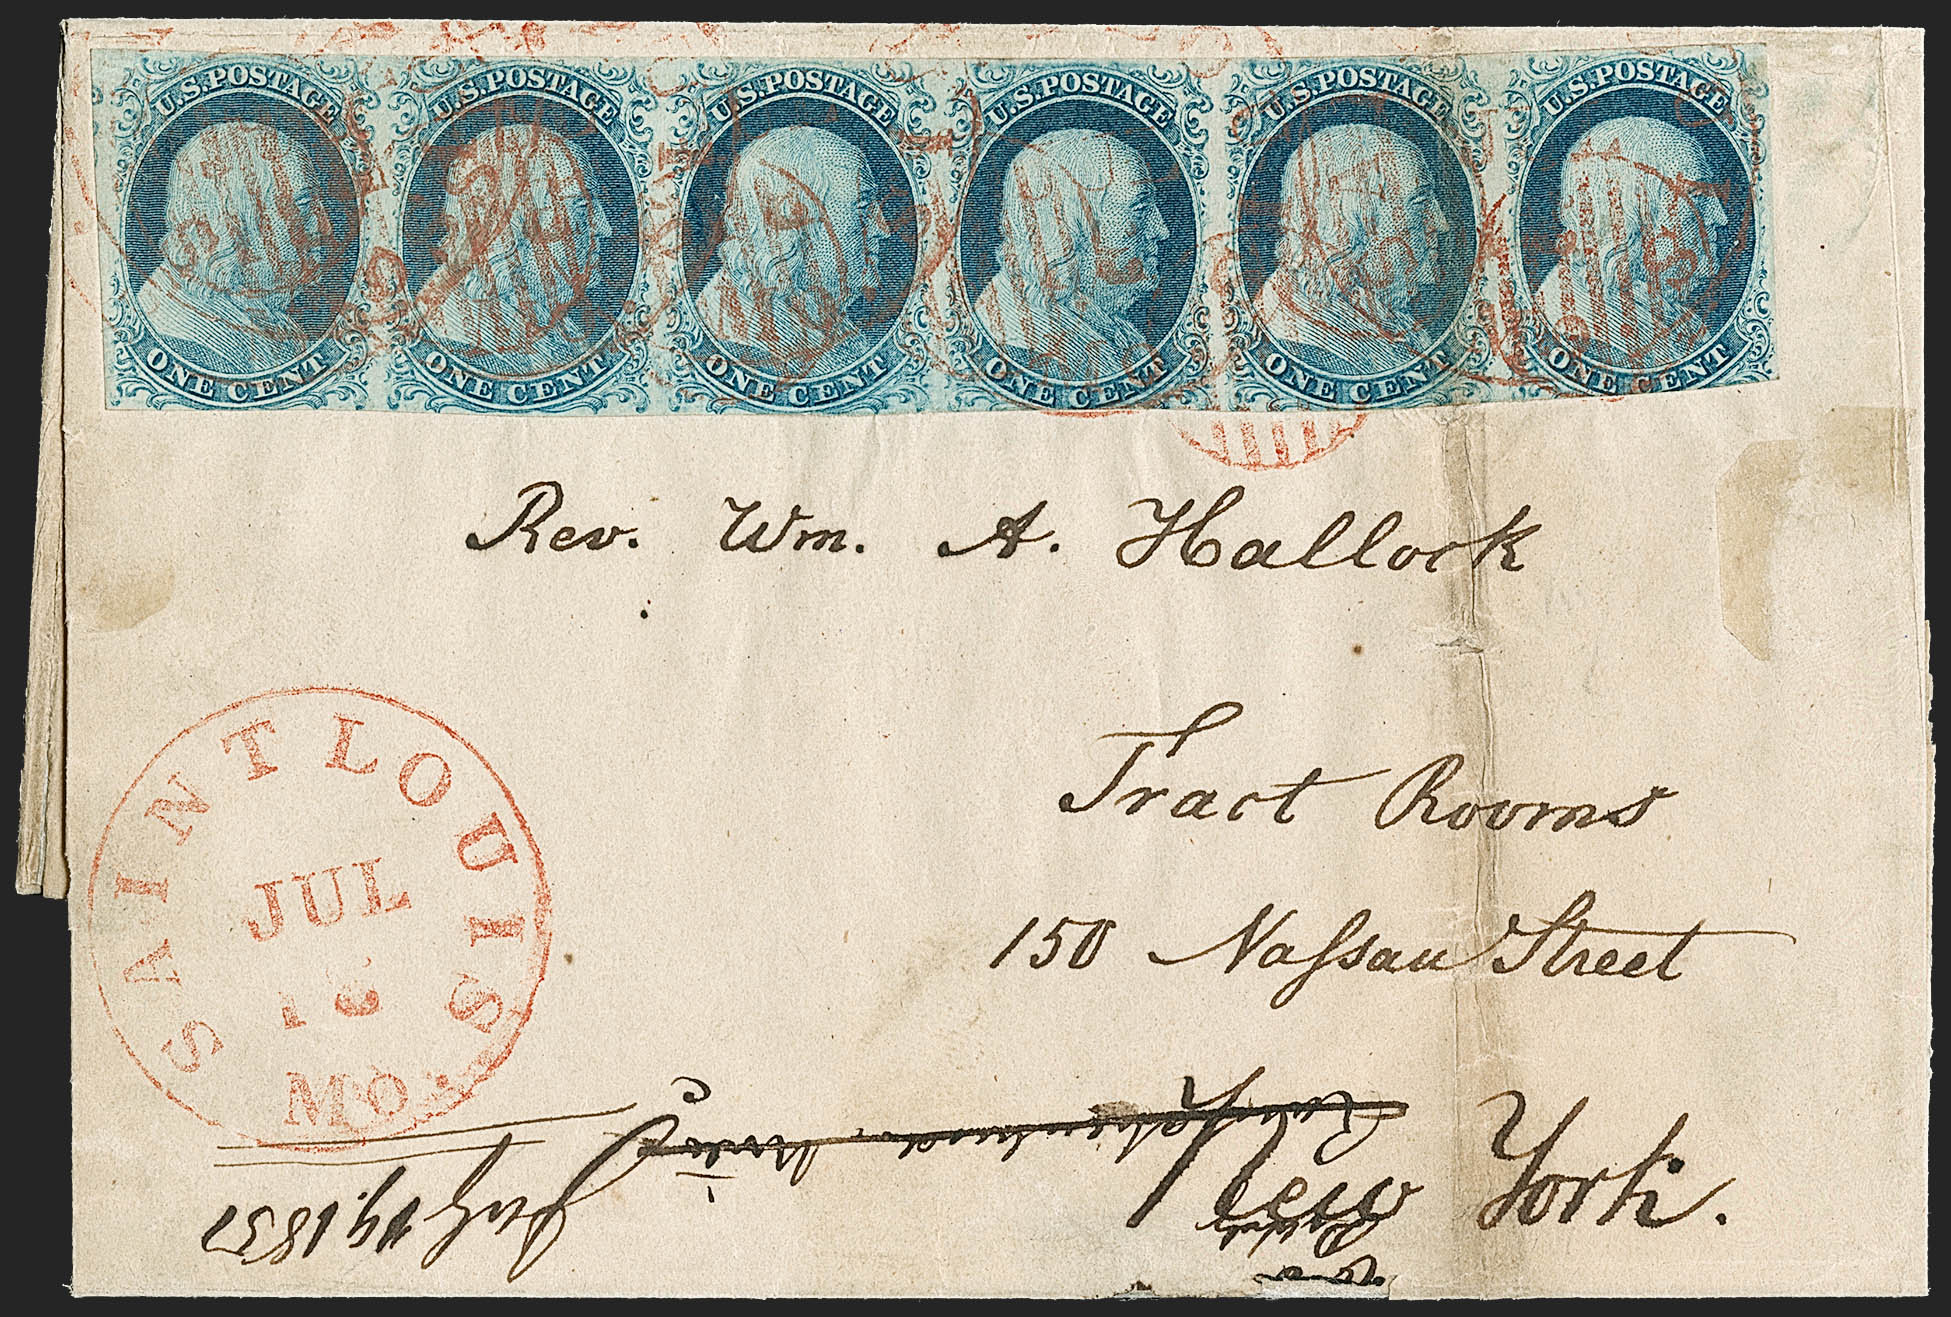 U.S.POSTAGE U.S.POSTAGE U.S.POSTAGE U.S.POSTAGE U.S.POSTAGE U.S.POSTAGE
ONE CENT ONE CENT ONE CENT ONE CENT ONE CENT ONE CENT
Rev. Wm. A. Hallock
Tract Rooms
150 Naſsau Street
New York.
SAINT LOUIS
JUL
MO.
July 19, 1851